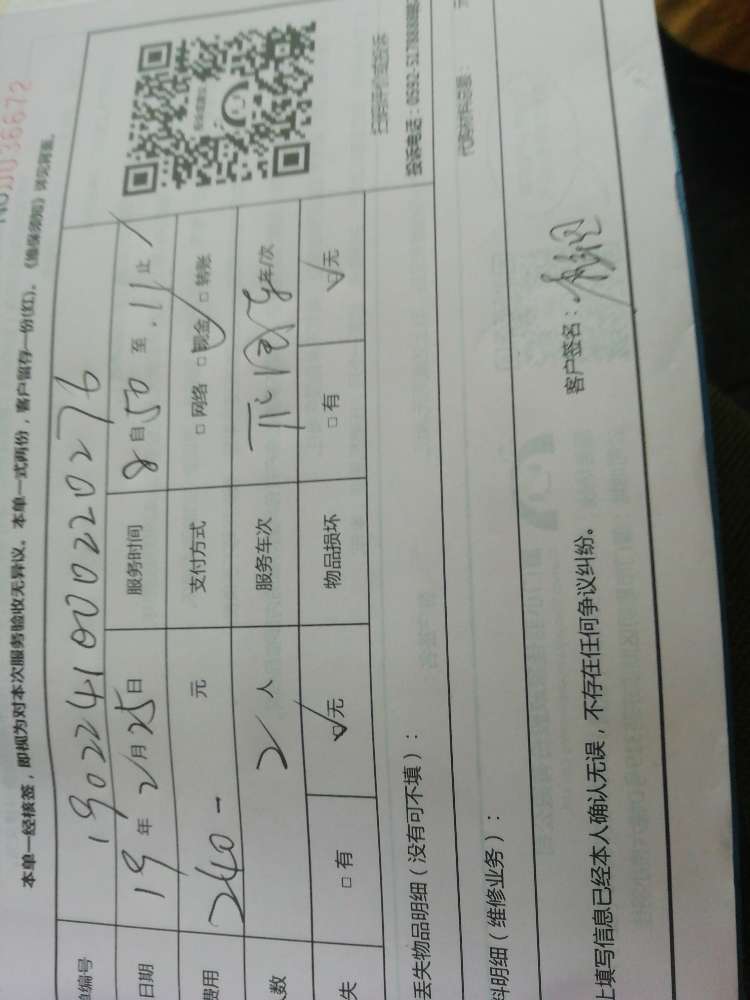 0036672
本单一经核签，即视为对本次服务验收无异议。本单一式两份，客户留存一份(红)。《维保须知》详见背面。
单编号 190224100022 0276
日期 19 年 2 月 25 日 服务时间 8 自 50 至 11 止
费用 240- 元 支付方式 □ 网络 □ 现金 □ 转账
人数 2 人 服务车次 年/次
失 □ 有 □ 无 物品损坏 □ 有 □ 无
扫码评价或投诉
投诉电话：0592-5178888
丢失物品明细（没有可不填）：
料明细（维修业务）： 代购材料总额： 元
上填写信息已经本人确认无误，不存在任何争议纠纷。 客户签名：